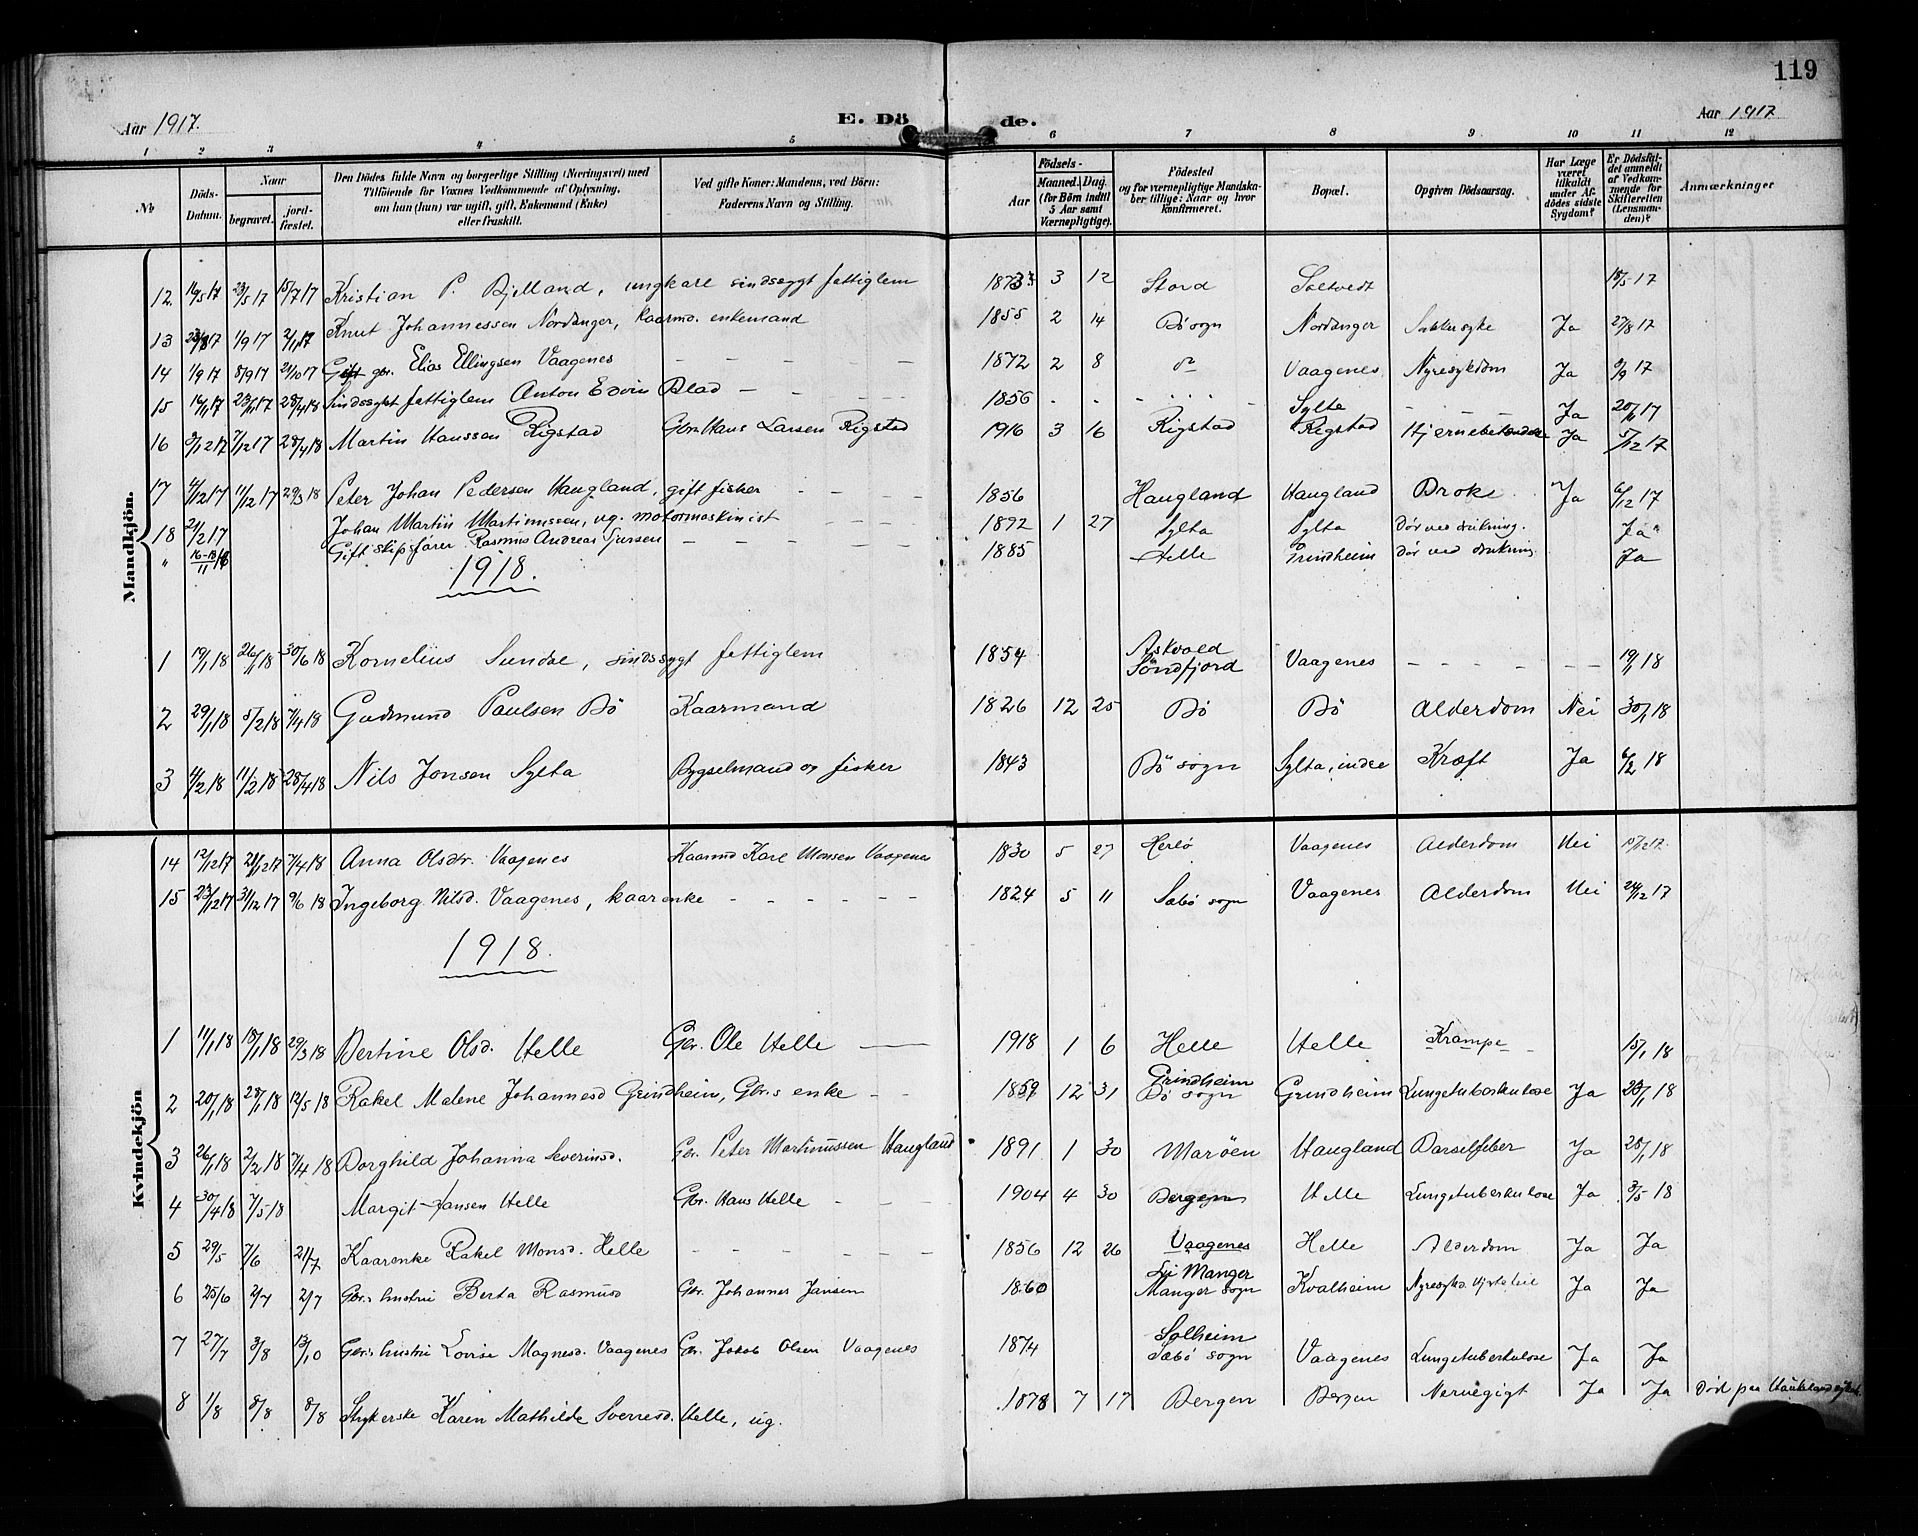 119
Aar 1917. E. Döde. Aar 1917
1 2 3 4 5 6 7 8 9 10 11 12
No
Döds-Datum.
Naar
begravet.
jordfæstet.
Den Dödes fulde Navn og borgerlige Stilling (Næringsvei) med Tilföiende for Voxnes Vedkommende af Oplysning, om han (hun) var ugift, gift, Enkemand (Enke) eller fraskilt.
Ved gifte Koner: Mandens, ved Börn: Faderens Navn og Stilling.
Födsels-
Aar
Maaned. Dag
(for Börn indtil 5 Aar samt Værnepligtige).
Födested og for værnepligtige Mandskaber tillige: Naar og hvor konfirmeret.
Bopæl.
Opgiven Dödsaarsag.
Har Læge været tilkaldt under Afdödes sidste Sygdom?
Er Dödsfaldet anmeldt af Vedkommende for Skifteretten (Lensmanden)?
Anmærkninger
Mandkjön.
12. 16/5 17 23/5 17 15/7 17 Kristian P. Bjelland, ungkarl sindssygt fattiglem 1873 3 12 Stord Soltvedt 18/5 17
13 23/8 17 1/9 17 2/11 17 Knut Johannessen Nordanger, kaarmd. enkemand 1855 2 14 Bö sogn Nordanger Sukkersyke Ja 27/8 17
14 1/9 17 8/9 17 21/10 17 Gift gbr. Elias Ellingsen Vaagenes 1872 2 8 do Vaagenes Nyresykdom Ja 3/9 17
15 14/11 17 23/11 17 28/4 18 Sindssykt fattiglem Anton Edvin Blad 1856 Sylta Ja 20/11 17
16 3/12 17 7/12 17 28/4 18 Martin Hanssen Rigstad Gbr. Hans Larsen Rigstad 1916 3 16 Rigstad Rigstad Hjernebetændelse Ja 5/12 17
17 4/12 17 11/12 17 29/3 18 Peter Johan Pedersen Haugland, gift fisker 1856 Haugland Haugland Brokk Ja 6/12 17
18 21/2 17 Johan Martin Martinussen, ug. motormaskinist 1892 1 27 Sylta Sylta Dör ved drukning. Ja
" 16-18/11 18 Gift skipsförer Rasmus Andreas Iversen 1885 Helle Grindheim Dör ved drukning Ja
1918.
1 19/1 18 26/1 18 30/6 18 Kornelius Sundal, sindssygt fattiglem 1854 Askvold Söndfjord Vaagenes 19/1 18
2 29/1 18 5/2 18 7/4 18 Gudmund Paulsen Bö Kaarmand 1826 12 25 Bö Bö Alderdom Nei 30/1 18
3 4/2 18 11/2 18 28/4 18 Nils Jonsen Sylta Bygselmand og fisker 1843 Bö sogn Sylta, indre Kræft Ja 6/2 18
Kvindekjön
14 12/12 17 21/12 17 7/4 18 Anna Olsdr. Vaagenes Kaarmd Karl Monsen Vaagenes 1830 5 27 Herlö Vaagenes Alderdom Nei 15/12 17.
15 23/12 17 31/12 17 9/6 18 Ingeborg Nilsd. Vaagenes, kaarenke 1824 5 11 Sæbö sogn Vaagenes Alderdom Nei 24/12 17
1918.
1 14/1 18 18/1 18 29/3 18 Bertine Olsd. Helle Gbr. Ole Helle 1918 1 6 Helle Helle Krampe 15/1 18
2 20/1 18 28/1 18 12/5 18 Rakel Malene Johannesd Grindheim, Gbr.s enke 1859 12 31 Grindheim Bö sogn Grindheim Lungetuberkulose Ja 23/1 18
3 26/1 18 2/2 18 7/4 18 Borghild Johanna Severinsd. Gbr. Peter Martinussen Haugland 1891 1 30 Maröen Haugland Barselfeber Ja 28/1 18
4 30/4 18 7/5 18 Margit Hansen Helle Gbr. Hans Helle 1904 4 30 Bergen Helle Lungetuberkulose Ja 3/5 18
5 29/5 7/6 21/7 Kaarenke Rakel Monsd. Helle 1856 12 26 Vaagenes Helle Alderdom Ja Ja
6 25/6 2/7 2/7 Gbr.s hustru Berta Rasmusd Gbr. Johannes Jansen 1860 Manger Manger sogn Kvalheim Ja Ja
7 27/7 3/8 13/10 Gbr.s hustru Lovise Magnesd. Vaagenes Gbr. Jakob Olsen Vaagenes 1874 Solheim Sæbö sogn Vaagenes Lungetuberkulose Ja Ja
8 1/8 8/8 8/8 Strykerske Karen Mathilde Sverresd. Helle, ug. 1878 7 17 Bergen Bergen Nervegigt Ja Ja Död paa Haukeland sykeh.